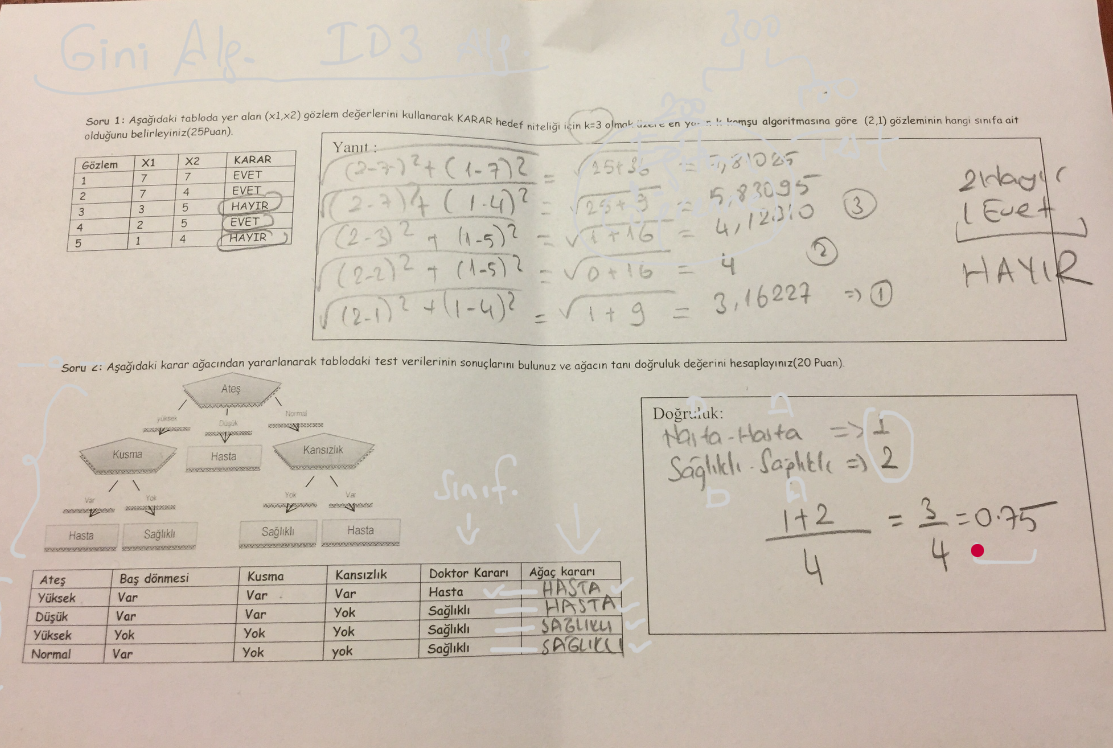 Gini Alg. ID3 Alg.
300
Soru 1: Aşağıdaki tabloda yer alan (x1,x2) gözlem değerlerini kullanarak KARAR hedef niteliği için k=3 olmak en komşu algoritmasına göre (2,1) gözleminin hangi sınıfa ait
olduğunu belirleyiniz(25Puan).
Gözlem X1 X2 KARAR
1 7 7 EVET
2 7 4 EVET
3 3 5 HAYIR
4 2 5 EVET
5 1 4 HAYIR
Yanıt :
√(2-7)²+(1-7)² = √25+36 =
√(2-7)²+(1-4)² = √25+9 = 5,83095
√(2-3)²+(1-5)² = √1+16 = 4,12310 3
√(2-2)²+(1-5)² = √0+16 = 4 2
√(2-1)²+(1-4)² = √1+9 = 3,16227 => 1
1 Evet
HAYIR
Soru 2: Aşağıdaki karar ağacından yararlanarak tablodaki test verilerinin sonuçlarını bulunuz ve ağacın tanı doğruluk değerini hesaplayınız(20 Puan).
Ateş
yüksek Düşük Normal
Kusma Hasta Kansızlık
Var Yok Yok Var
Hasta Sağlıklı Sağlıklı Hasta
Sınıf.
Ateş Baş dönmesi Kusma Kansızlık Doktor Kararı Ağaç kararı
Yüksek Var Var Var Hasta HASTA
Düşük Var Var Yok Sağlıklı HASTA
Yüksek Yok Yok Yok Sağlıklı SAĞLIKLI
Normal Var Yok yok Sağlıklı SAĞLIKLI
Doğruluk:
Hasta-Hasta => 1
Sağlıklı-Sağlıklı => 2
1+2 / 4 = 3 / 4 = 0.75